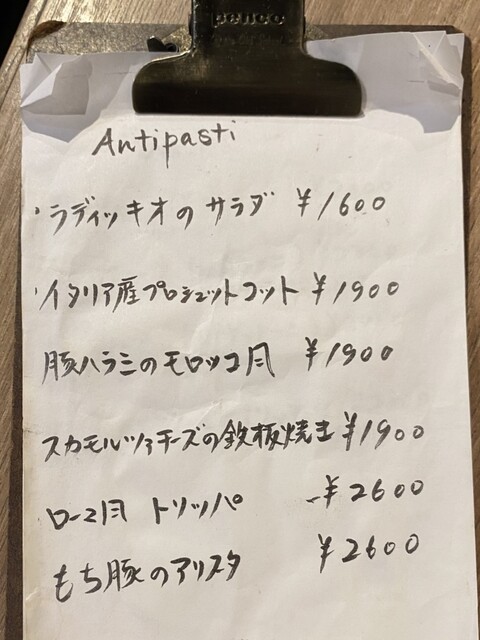 penco
Antipasti
・ラディッキオのサラダ ¥1600
・イタリア産プロシュットコット ¥1900
豚ハラミのモロッコ風 ¥1900
スカモルツァチーズの鉄板焼き ¥1900
ローマ風 トリッパ ¥2600
もち豚のアリスタ ¥2600